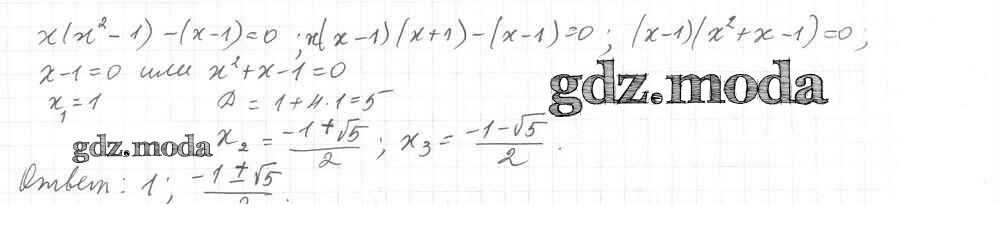 x(x²-1)-(x-1)=0; x(x-1)(x+1)-(x-1)=0; (x-1)(x²+x-1)=0;
x-1=0 или x²+x-1=0
gdz.moda
x₁=1 D=1+4·1=5
gdz.moda x₂=(-1+√5)/2; x₃=(-1-√5)/2.
Ответ: 1; (-1±√5)/2.